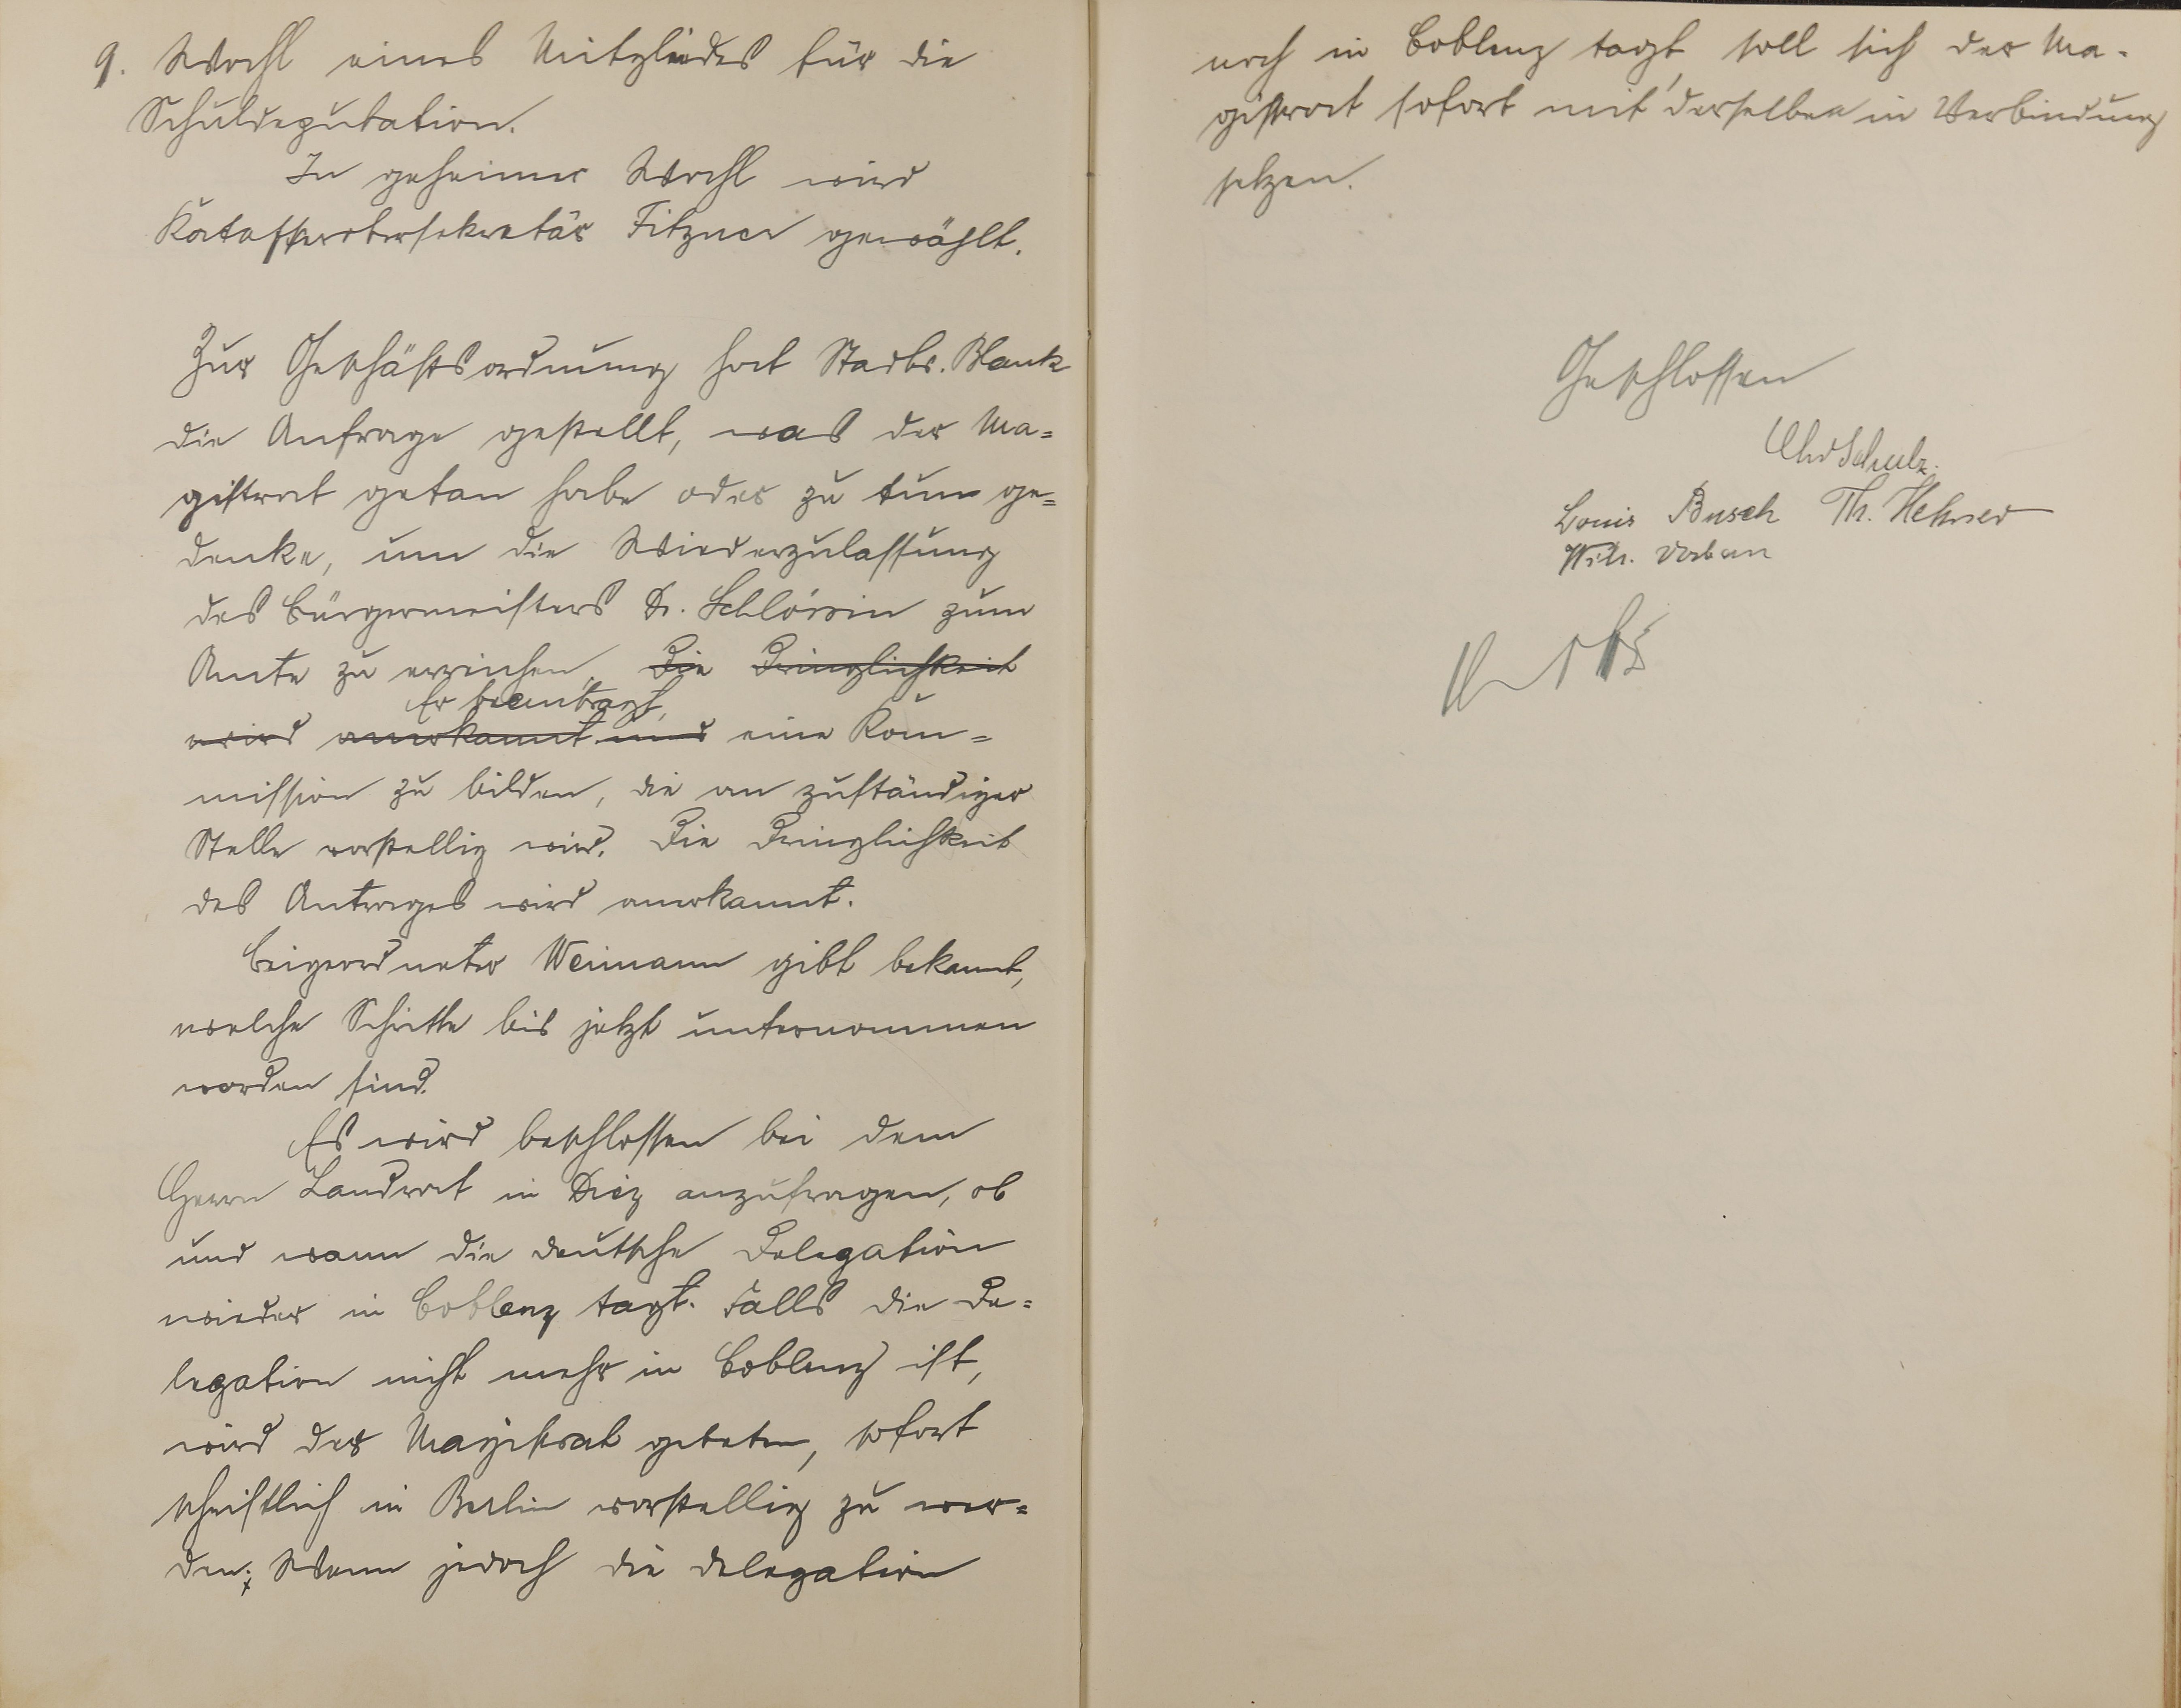 9. Wahl eines Mitgliedes für die
Schuldeputation.
In geheimer Wahl wird
Katasterobersekretär Fitzner gewählt.
Zur Geschäftsordnung hat Stadtv. Blank
die Anfrage gestellt, was der Ma=
gistrat getan habe oder zu tun ge=
denke, um die Wiederzulassung
des Bürgermeisters Dr. Schlössin zum
Amte zu erreichen. Die Dringlichkeit
Er beantragt,
wird anerkannt und eine Kom=
mission zu bilden, die an zuständiger
Stelle vorstellig wird. Die Dringlichkeit
des Antrages wird anerkannt.
Beigeordneter Weimann gibt bekannt,
welche Schritte bis jetzt unternommen
worden sind.
Es wird beschlossen bei dem
Herrn Landrat in Diez anzufragen, ob
und wann die deutsche Delegation
wieder in Coblenz tagt. Falls die De=
legation nicht mehr in Coblenz ist,
wird der Magistrat gebeten, sofort
schriftlich in Berlin vorstellig zu wer=
den. Wenn jedoch die Delegation
noch in Coblenz tagt, soll sich der Ma-
gistrat sofort mit derselben in Verbindung
setzen.
Geschlossen
Schulz.
Louis Busch Th. Hehner
Wilh.